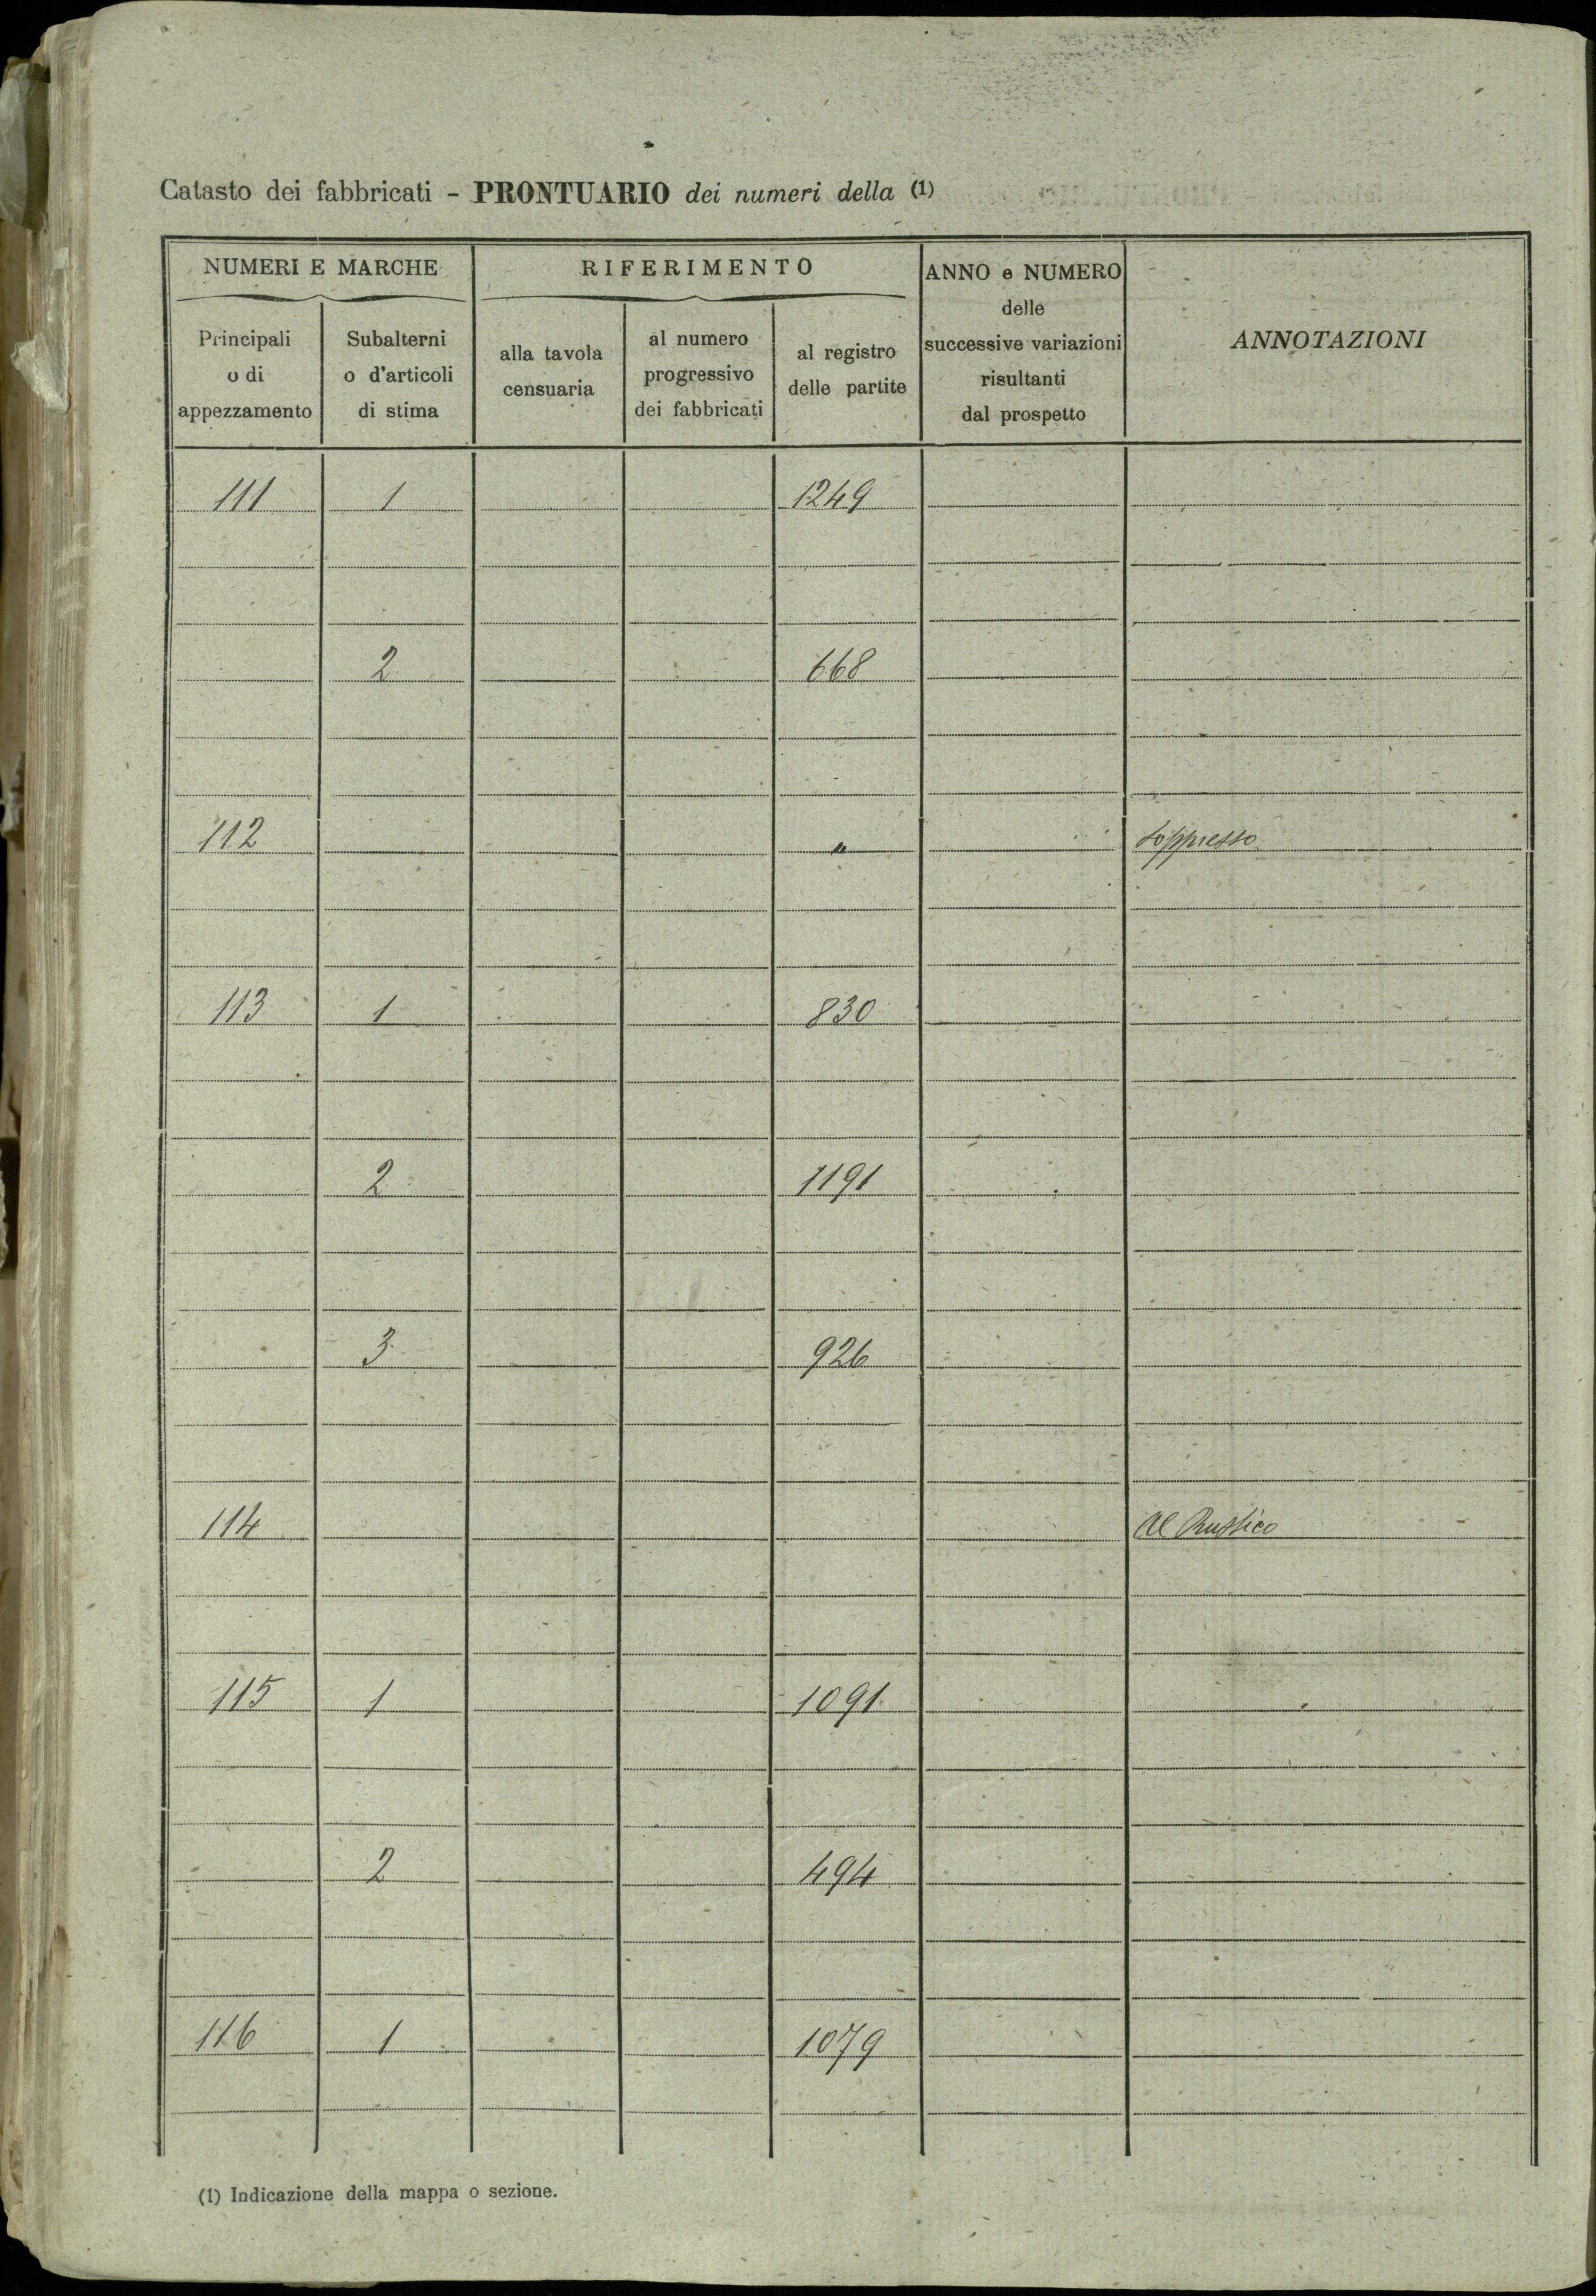 Catasto dei fabbricati - PRONTUARIO dei numeri della (1)
NUMERI E MARCHE
RIFERIMENTO
ANNO e NUMERO
delle
successive variazioni
risultanti
dal prospetto
ANNOTAZIONI
Principali
o di
appezzamento
Subalterni
o d'articoli
di stima
alla tavola
censuaria
al numero
progressivo
dei fabbricati
al registro
delle partite
111 1 1249
2 668
112 " soppresso
113 1 830
2 1191
3 926
114 Al Rustico
115 1 1091
2 494
116 1 1079
(1) Indicazione della mappa o sezione.